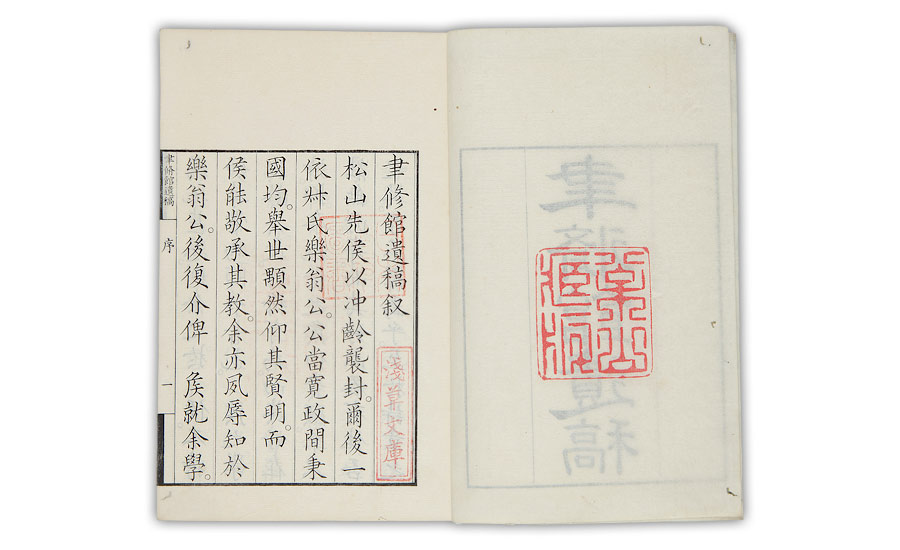 聿修館遺稿叙
淺草文庫
松山先侯以冲齡襲封。爾後一
依叔氏樂翁公。公當寬政間秉
國均。舉世顒然仰其賢明。而
侯能敬承其教。余亦夙辱知於
樂翁公。後復介俾　侯就余學。
聿脩館遺稿　序　一